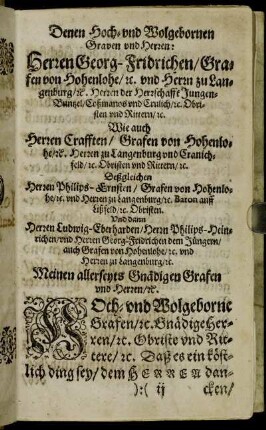 Denen Hoch- vnd Wolgebornen
Graven vnd Herren:
Herren Georg-Fridrichen/ Gra-
fen von Hohenlohe/ ꝛc. vnd Herrn zu Lan-
genburg/ ꝛc. Herren der Herrschafft Jungen-
Buntzel/ Coßmanos vnd Crulich/ ꝛc. Obri-
sten vnd Rittern/ ꝛc.
Wie auch
Herren Crafften/ Grafen von Hohenlo-
he/ ꝛc. Herren zu Langenburg vnd Cranich-
feld/ ꝛc. Obristen vnd Rittern/ ꝛc.
Deßgleichen
Herren Philips-Ernsten/ Grafen von Hohenlo-
he/ ꝛc. vnd Herren zu Langenburg/ ꝛc. Baron auff
Lißfeld/ ꝛc. Obristen.
Vnd dann
Herren Ludwig-Eberharden/ Herrn Philips-Hein-
richen/ vnd Herren Georg-Fridrichen dem Jüngern/
auch Grafen von Hohenlohe/ ꝛc. vnd
Herren zu Langenburg/ ꝛc.
Meinen allerseyts Gnädigen Grafen
vnd Herren/ ꝛc.
HOch- vnd Wolgeborne
Grafen/ ꝛc. Gnädige Her-
ren/ ꝛc. Obriste vnd Rit-
tere/ ꝛc. Daß es ein köst-
lich ding sey/ dem HERREN dan-
):( ij cken/